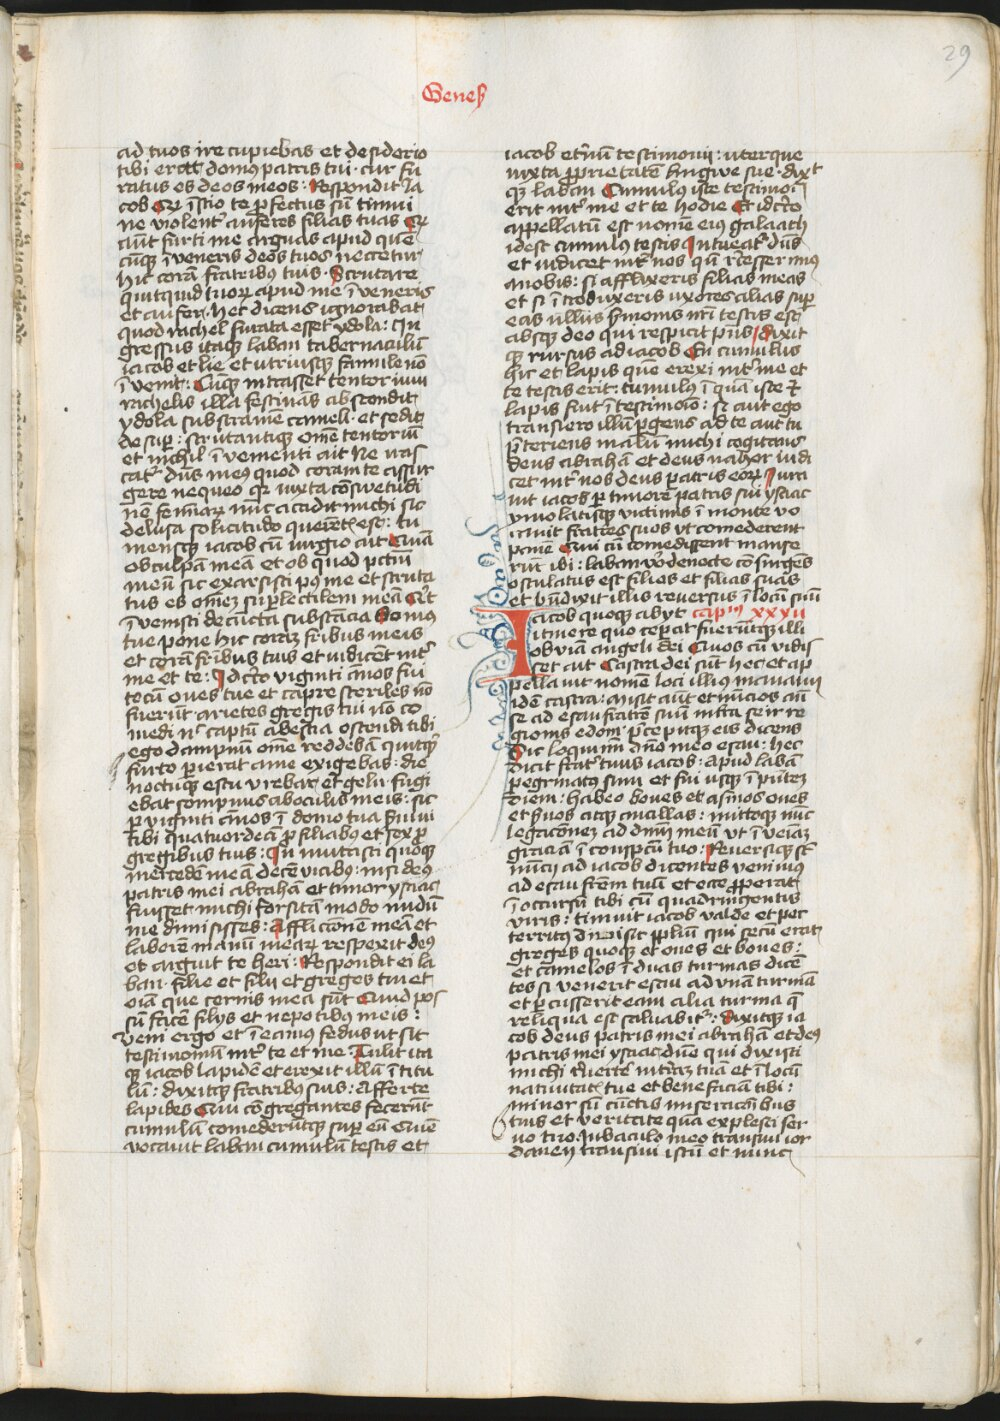 29
Genes
ad tuos ire cupiebas et desiderio
tibi erat domus patris tui · cur fu
ratus es deos meos : Respondit Ia
cob Qr̄ īscio te p̄fectus sū timui
ne violent᷑ auferes filias tuas Qr̄
aūt furti me arguas apud quē
cūqȝ īveneris deos tuos necetur
hic corā fratribus tuis · Scrutare
quitquid tuoꝝ apud me īveneris
et aufer · Hec dicens ignorabat
quod rachel furata esset ydola : In
gressus itaqȝ laban tabernaculū
iacob et lie et utriusqȝ famule nō
īvenit : Cūqȝ intrasset tentorium
rachelis illa festinās abscondit
ydola sub stramē cameli · et sedit
desup̄ : scrutantiqȝ om̄e tentoriū
et nichil īvenienti ait Ne iras
cat᷑ dn̄s meus quod coram te assur
gere nequeo qr̄ iuxta cōswetudi
nē femīaꝝ nūc accidit michi sic
delusa solicitudo querētˢ est : tu
mensqȝ iacob cū iurgio ait Quā
ob culpam meā et ob quod pctm̄
meū sic exarsisti pꝯ me et scruta
tus es om̄eȝ sup̄lectilem meā Qͥd
īvenisti de cūcta substācia domus
tue pone hic coraȝ fribus meis
et corā fr̄ibus tuis et iudicēt int᷑
me et te : Idcīrco viginti ānos fui
tecū oves tue et capre steriles nō
fuerūt arietes gregis tui nō co
medi nͨ captū a bestia ostendi tibi
ego dampnū om̄e reddebā quitqͥd
furto p̄ierat a me exigebas : die
noctuqȝ estu urebar et gelu · fugi
ebat sompnus ab oculis meis : sic
p̄ viginti ānos ī domo tua s̄vivi
tibi quatuordecī p̄ filiabus et sex p̄
gregibus tuis : In mutasti quoqȝ
mercedē meā decē vicibus : nisi deus
patris mei abrahā et timor ysaac
fuisset michi forsitā modo nudū
me dimisisses : Afflictionē meā et
laborē manuū meaꝝ respexit deus
et arguit te heri : Respondit ei la
ban · filie et filii et greges tui et
oīa que cernis mea sūt Quid pos
sū facē filys et nepotibus meis :
Veni ergo et ī eamus fedus ut sit
testimoniū int᷑ te et me : Tulit ita
qȝ iacob lapidē et erexit illū ī titu
lū : dixitqȝ fratribus suis : Afferte
lapides Qui cōgregantes fecerūt
cumulū comederūtqȝ sup̄ eū Quē
vocavit laban cumulū testis et
iacob et᷑nū testimonii : uterque
iuxta pp̄rietatē lingwe sue · dixit
qȝ laban Cumulus iste testimoī
erit int᷑ me et te hodie Et idcīrco
appellatū est nomē eius galaath
idest cumulus testis Intueat᷑ dn̄s
et iudicet int᷑ nos qn̄ recesserimus
a nobis : si afflixeris filias meas
et si ītroduxeris uxores alias sup̄
eas ullus s̄monis nr̄i testis est
absqȝ deo qui respicit p̄us dixit
qȝ rursus ad iacob En cumulus
hic et lapis quē erexi int᷑ me et
te testis erit : tumulus īquā iste et
lapis sint ī testimoīo : si aut ego
transiero illū p̄gens ad te aut tu
p̄teriens malū michi cogitans
deus abrahā et deus nahor iudi
cet int᷑ nos deus patris eoꝝ Iura
vit iacob p̄ timorē patris sui ysaac
ymolatisqȝ victimis ī monte vo
cavit fratres suos ut comederent
panē Qui cū comedissent manse
rūt ibi : laban v̄o de nocte cōsurgēs
osculatus est filios et filias suas
et bn̄dixit illis reversus ī locū suū
Iacob quoqȝ abyt capᵐ xxxii
itinere quo ceperat fueruntqȝ illi
obviā angeli dei Quos cū vidis
set ait Castra dei sūt hec et ap
pellavit nomē loci illius manaim
idē castra : misit aūt et nūcios an̄
se ad esau fratrē suū in terrā seir re
gionis edom · p̄cepitqȝ eis dicens
Sic loquimī dn̄o meo esau : hec
dicit frat᷑ tuus iacob : apud labā
pegrinatus sum et fui usqȝ ī p̄nteȝ
diem : habeo boves et asinos oves
et s̄vos atqȝ ancillas : mittoqȝ nūc
legacioneȝ ad dnm̄ meū ut īveniā
graciā ī conspcū tuo : Reversiqȝ sr̄
nūcii ad iacob dicentes venimus
ad esau frēm tuū et ecce p̄perat
ī occursū tibi cū quadringentis
viris : timuit iacob valde et per
territus divisit pplū qui secū erat
greges quoqȝ et oves et boves :
et camelos ī duas turmas dicē
tes si venerit esau ad unā turmā
et p̄cusserit eam alia turma que
reliqua est salvabit᷑ : dixitqȝ ia
cob deus patris mei abrahā et deus
patris mei ysaac dn̄e qui dixisti
michi revertē in terrā tuā et ī locū
nativitatˢ tue et benefaciā tibi :
minor sū cūctis miseracōībus
tuis et veritate quā explesti ser
vo tuo · In baculo meo transivi ior
danē transivi istū et nunc